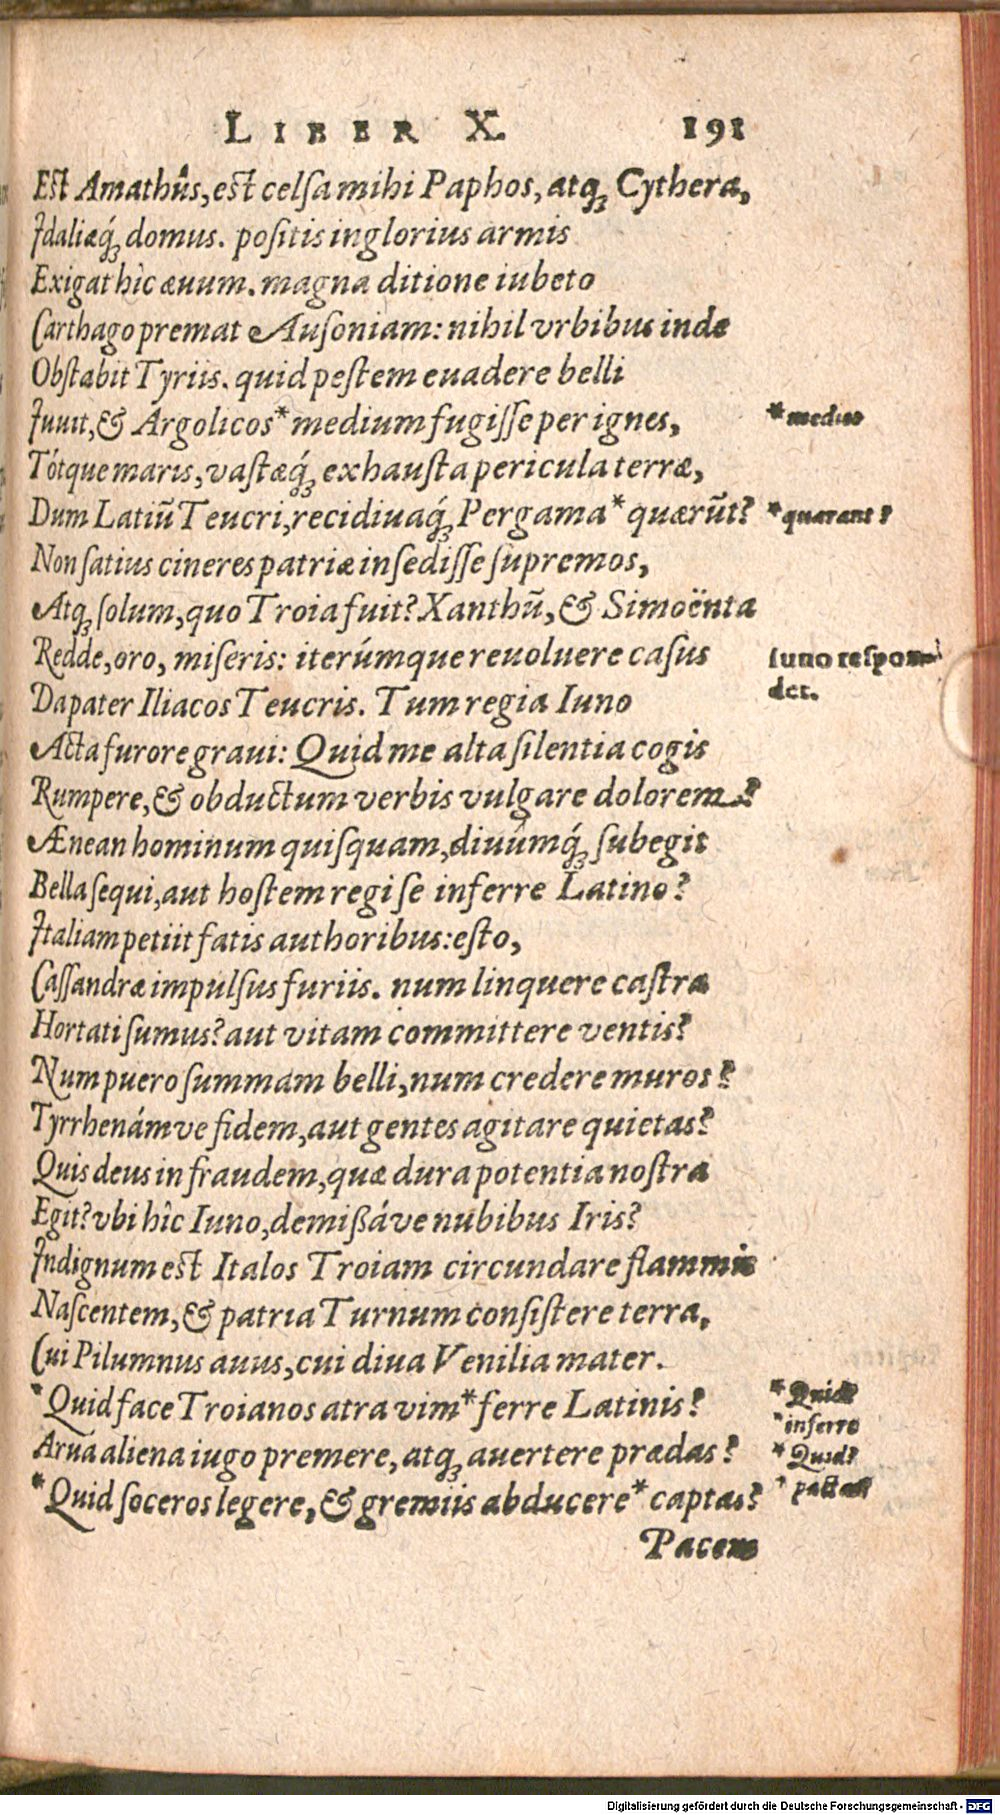 LIBER X. 191
Est Amathûs, est celsa mihi Paphos, atq; Cythera,
Idaliæq́; domus. positis inglorius armis
Exigat hîc æuum. magna ditione iubeto
Carthago premat Ausoniam: nihil vrbibus inde
Obstabit Tyriis. quid pestem euadere belli
Iuuit, & Argolicos * medium fugisse per ignes, * medios
Tótque maris, vastæq́; exhausta pericula terræ,
Dum Latiũ Teucri, recidiuaq́; Pergama * quærũt? * quærant?
Non satius cineres patriæ insedisse supremos,
Atq; solum, quo Troia fuit? Xanthũ, & Simoënta
Redde, oro, miseris: iterúmque reuoluere casus Iuno respon-
Da pater Iliacos Teucris. Tum regia Iuno det.
Acta furore graui: Quid me alta silentia cogis
Rumpere, & obductum verbis vulgare dolorem?
Ænean hominum quisquam, diuúmq́; subegit
Bella sequi, aut hostem regi se inferre Latino?
Italiam petiit fatis authoribus: esto,
Cassandræ impulsus furiis. num linquere castra
Hortati sumus? aut vitam committere ventis?
Num puero summam belli, num credere muros?
Tyrrhenámve fidem, aut gentes agitare quietas?
Quis deus in fraudem, quæ dura potentia nostra
Egit? vbi hîc Iuno, demißáve nubibus Iris?
Indignum est Italos Troiam circundare flammis
Nascentem, & patria Turnum consistere terra,
Cui Pilumnus auus, cui diua Venilia mater.
* Quid face Troianos atra vim * ferre Latinis? * Quid
* inferre
Arua aliena iugo premere, atq; auertere prædas? * Quid?
* Quid soceros legere, & gremiis abducere * captas? * pactas
Pacem
Digitalisierung gefördert durch die Deutsche Forschungsgemeinschaft - DFG